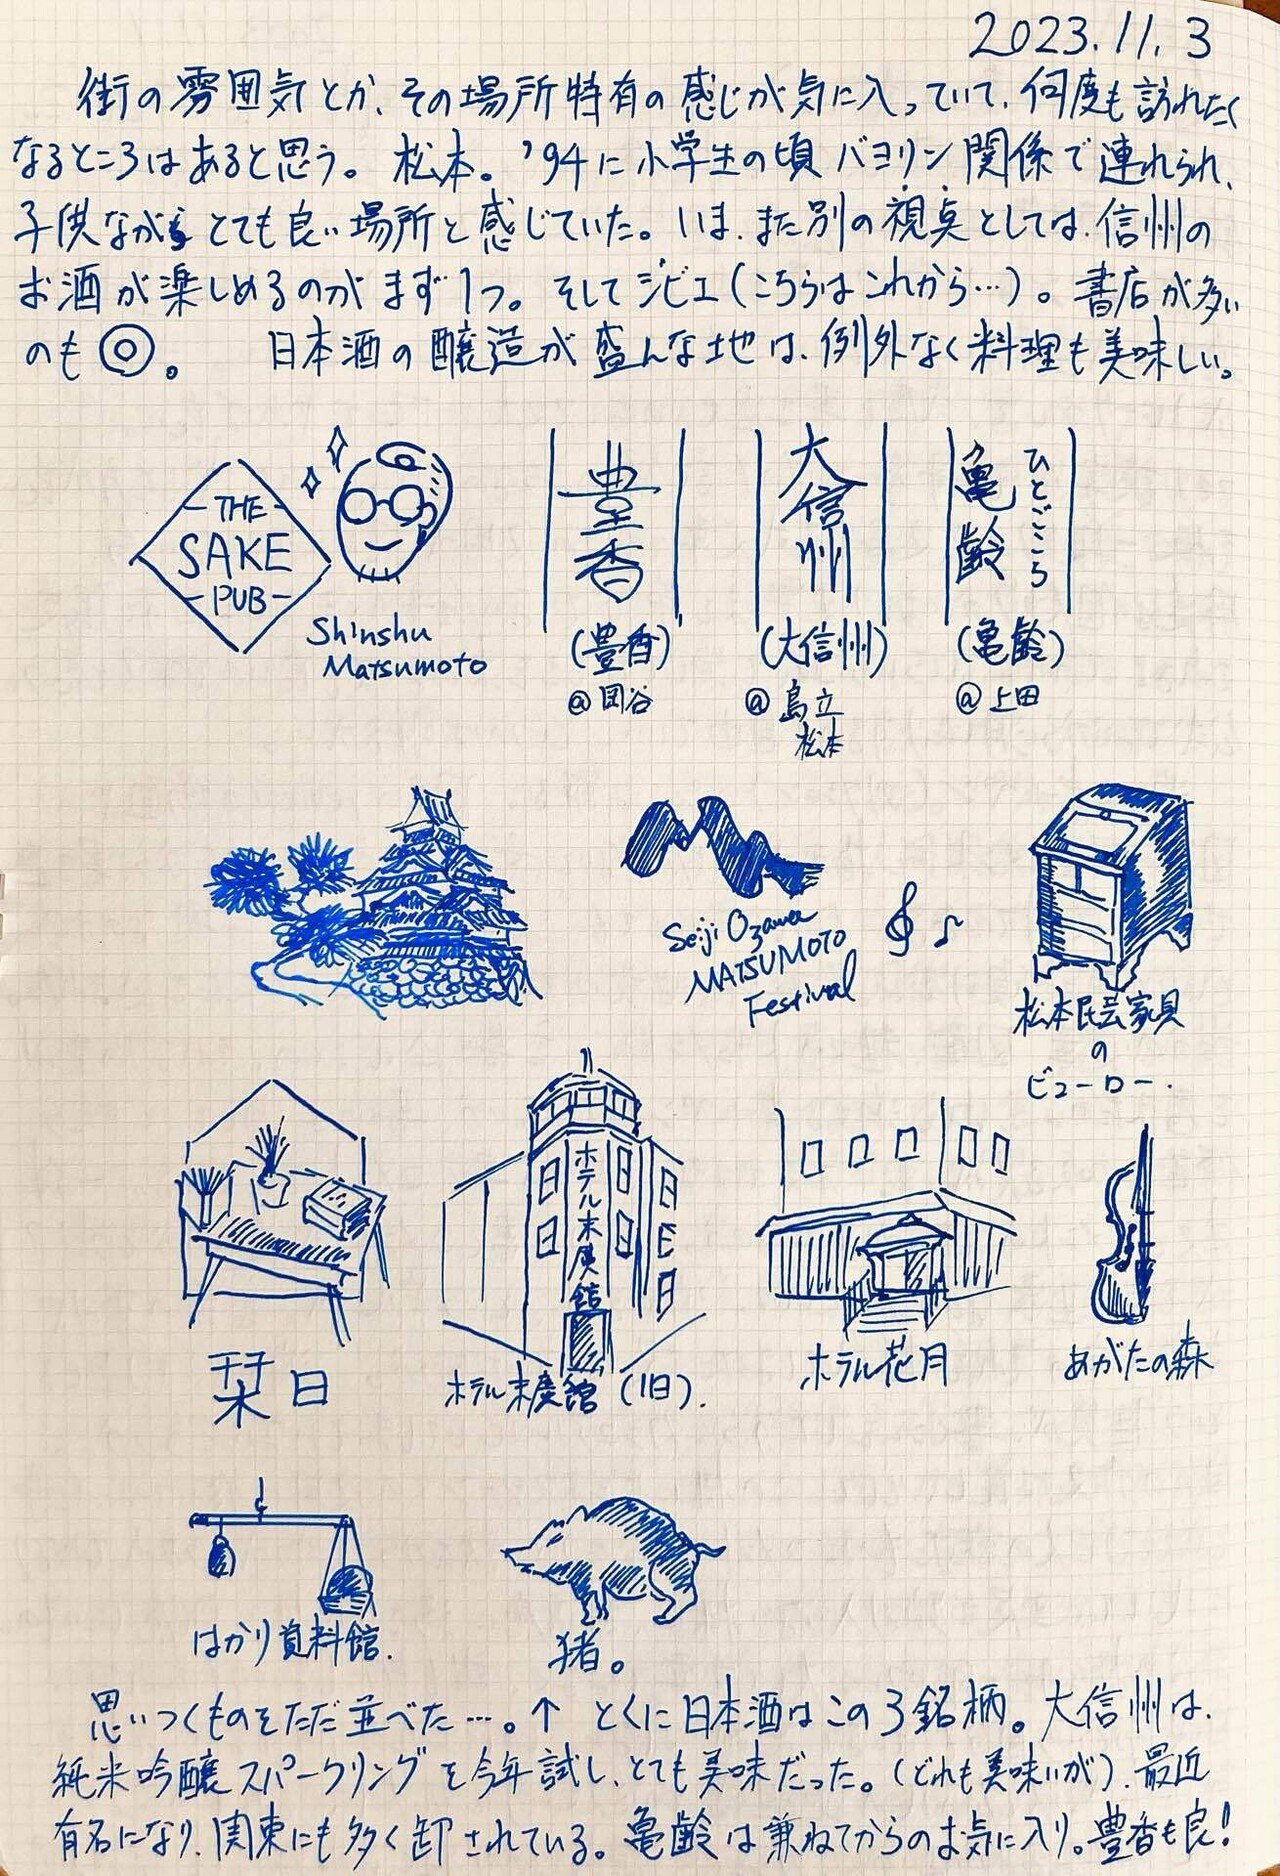 2023.11.3
街の雰囲気とか、その場所特有の感じが気に入っていて、何度も訪れたく
なるところはあると思う。松本。'94に小学生の頃バヨリン関係で連れられ、
子供ながらとても良い場所と感じていた。いま、また別の視点としては、信州の
お酒が楽しめるのがまず1つ。そしてジビエ(こちらはこれから…)。書店が多い
のも◎。 日本酒の醸造が盛んな地は、例外なく料理も美味しい。
THE
SAKE
PUB
Shinshu
Matsumoto
豊香
(豊香)
@岡谷
大信州
(大信州)
@島立
松本
亀齢
ひとごこち
(亀齢)
@上田
Seiji Ozawa
MATSUMOTO
Festival
松本民芸家具
の
ビューロー.
栞日
ホテル末廣館
ホテル末廣館(旧).
ホテル花月
あがたの森
はかり資料館.
猪。
思いつくものをただ並べた…。↑ とくに日本酒はこの3銘柄。大信州は、
純米吟醸スパークリングを今年試し、とても美味だった。(どれも美味いが)、最近
有名になり、関東にも多く卸されている。亀齢は兼ねてからのお気に入り。豊香も良!